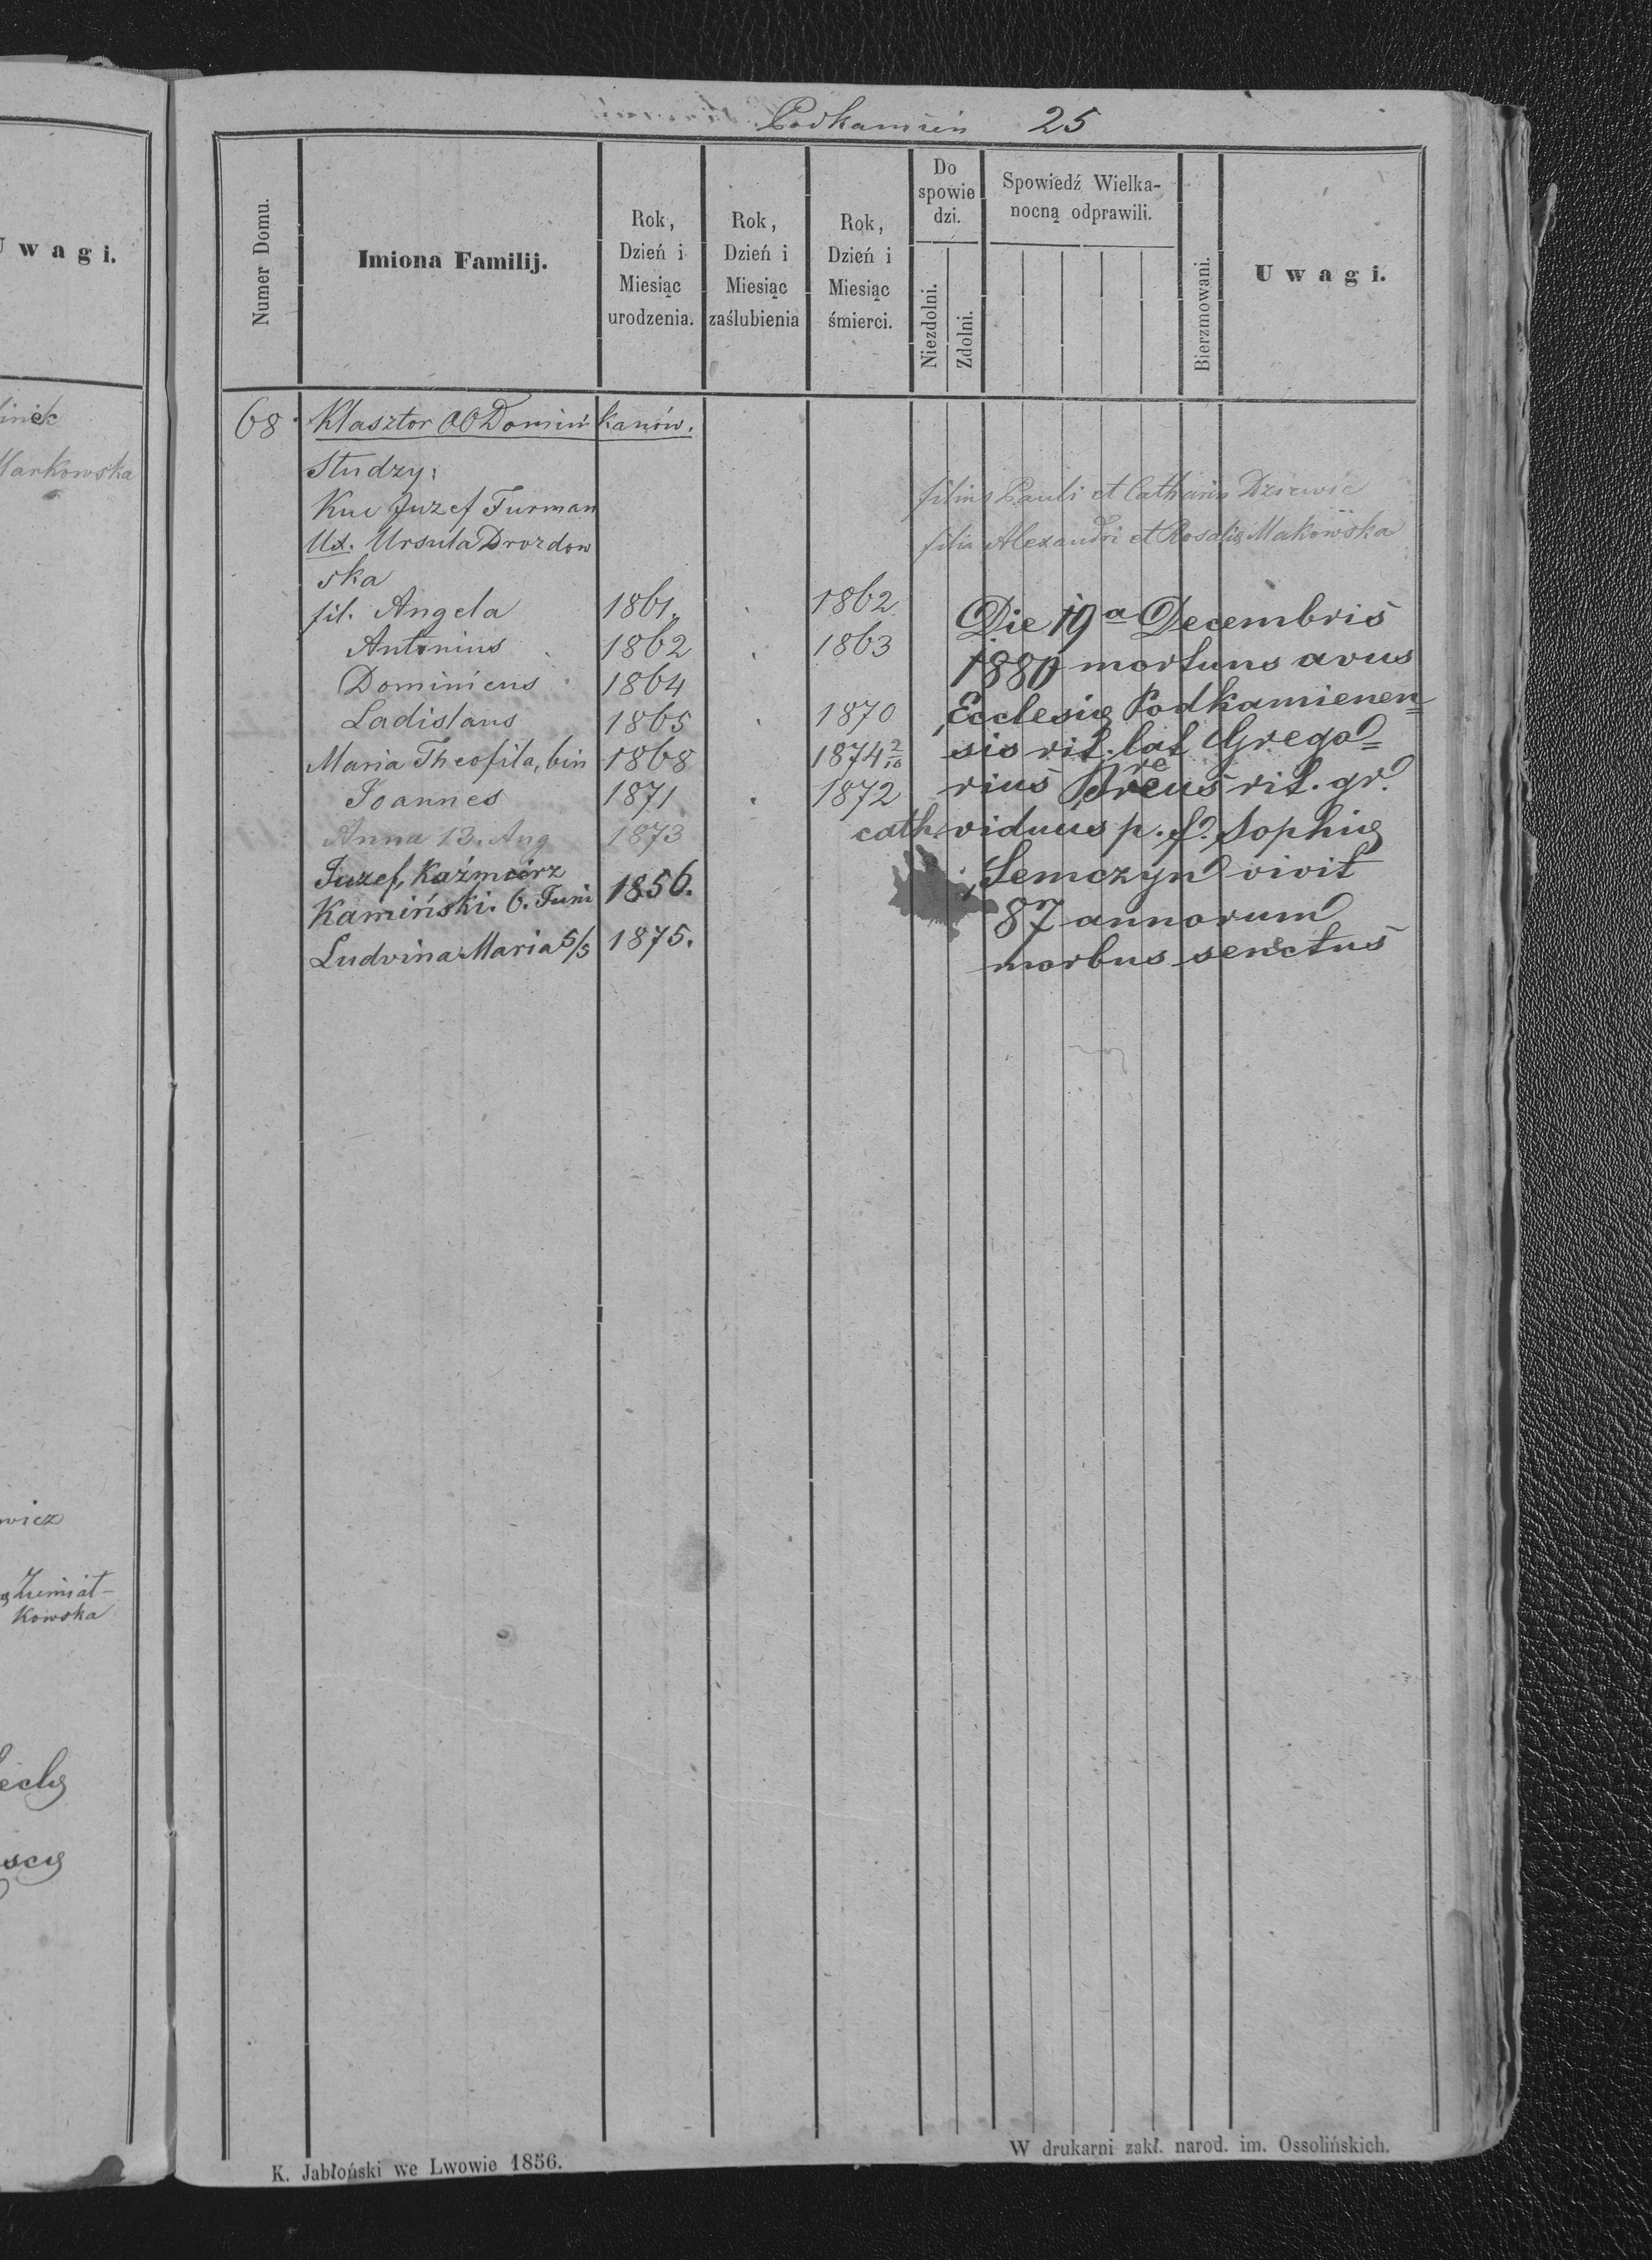 Podkamień 25
Uwagi.
Numer Domu.
Imiona Familij.
Rok,
Dzień i
Miesiąc
urodzenia.
Rok,
Dzień i
Miesiąc
zaślubienia
Rok,
Dzień i
Miesiąc
śmierci.
Do
spowie
dzi.
Niezdolni.
Zdolni.
Spowiedź Wielka-
nocną odprawili.
Bierzmowani.
Uwagi.
Markowska
68 Klasztor OO Dominikanów.
Studzy:
Kuc Juzef Furman filius Pauli et Catharin
Ux. Ursula Drozdow filia Alexandri et Rosalię Makowska
ska
fil. Angela 1861. 1862
Antonius 1862 1863
Dominicus 1864
Ladislaus 1865 1870
Maria Theofila, bin 1868 1874 2/10
Joannes 1871 1872
Anna 13. Aug 1873
Juzef, Kaźmierz
Kamiński. 6. Juni 1856.
Ludvina Maria 5/3 1875.
Die 19a Decembris
1880 mortuus avus
Ecclesię Podkamienen=
sis rit. lat Grego=
rius rit. gr.
cath viduus p. f. Sophię
Semczyn vivit
87 annorum
morbus senectus
wicz
Ziemiał-
kowska
K. Jabłoński we Lwowie 1856.
W drukarni zakł. narod. im. Ossolińskich.